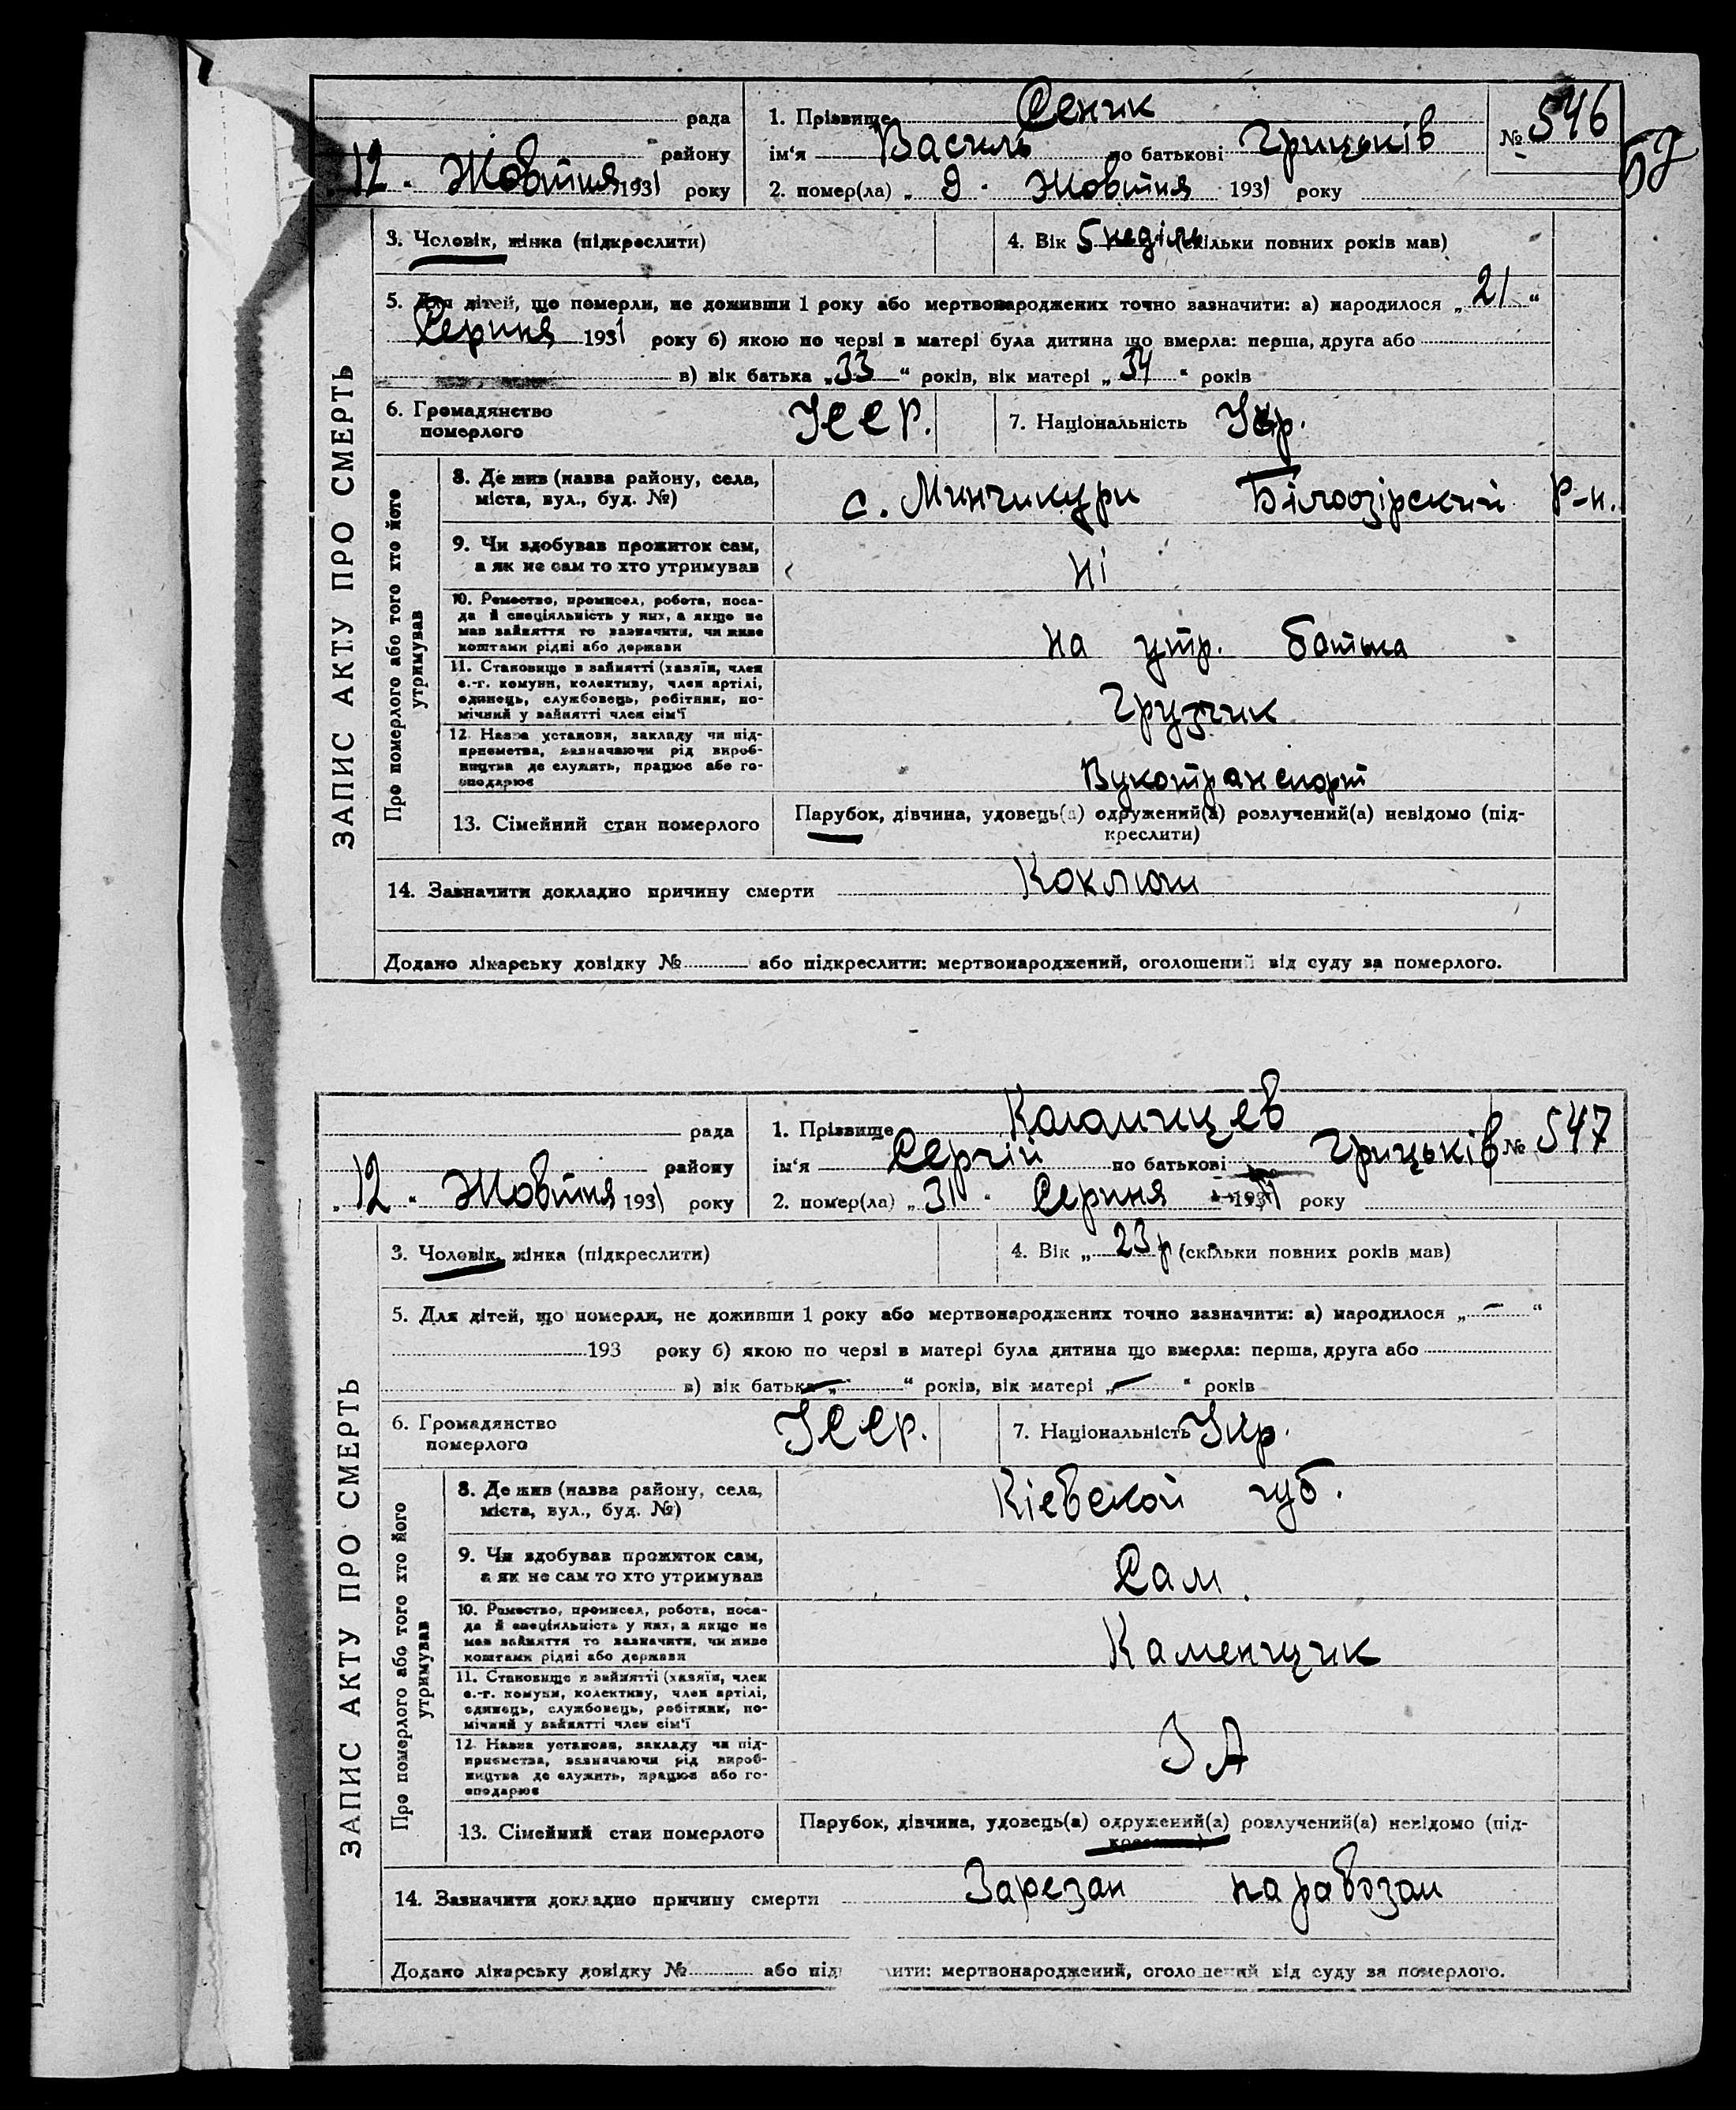 ЗАПИС АКТУ ПРО СМЕРТЬ
рада
району
12. Жовтня 1931 року
1. Прізвище Сеник
ім'я Василь по батькові Грицьків
№ 546
2. помер(ла) „ 9. Жовтня 1931 року
3. Чоловік, жінка (підкреслити)
4. Вік 5 неділь (скільки повних років мав)
5. Для дітей, що померли, не доживши 1 року або мертвонароджених точно зазначити: а) народилося „ 21 “
Серпня 1931 року б) якою по черзі в матері була дитина що вмерла: перша, друга або
в) вік батька „ 33 “ років, вік матері „ 34 “ років
6. Громадянство
померлого
УССР.
7. Національність Укр.
Про померлого або того хто його
утримував
8. Де жив (назва району, села,
міста, вул., буд. №)
с. Минчикури Білоозірский Р-н.
9. Чи здобував прожиток сам,
а як не сам то хто утримував
Ні
10. Ремество, промисел, робота, поса-
да й спеціяльність у них, а якщо не
мав заняття то зазначити, чи живе
коштами рідні або держави
на утр. батька
11. Становище в занятті (хазяїн, член
с.-г. комуни, колективу, член артілі,
одинець, службовець, робітник, по-
мічний у занятті член сім'ї
Грузчик
12. Назва установи, закладу чи під-
приємства, зазначаючи рід вироб-
ництва де служить, працює або го-
сподарює
Вукотранспорт
13. Сімейний стан померлого
Парубок, дівчина, удовець(а) одружений(а) розлучений(а) невідомо (під-
креслити)
14. Зазначити докладно причину смерти Коклюш
Додано лікарську довідку № або підкреслити: мертвонароджений, оголошений від суду за померлого.
ЗАПИС АКТУ ПРО СМЕРТЬ
рада
району
12. Жовтня 1931 року
1. Прізвище
ім'я Сергій по батькові Грицьків
№ 547
2. помер(ла) „ 31. Серпня 1931 року
3. Чоловік, жінка (підкреслити)
4. Вік „ 23 р (скільки повних років мав)
5. Для дітей, що померли, не доживши 1 року або мертвонароджених точно зазначити: а) народилося „ — “
193 року б) якою по черзі в матері була дитина що вмерла: перша, друга або
в) вік батька „ — “ років, вік матері „ — “ років
6. Громадянство
померлого
УССР.
7. Національність Укр.
Про померлого або того хто його
утримував
8. Де жив (назва району, села,
міста, вул., буд. №)
Кіевской губ.
9. Чи здобував прожиток сам,
а як не сам то хто утримував
Сам.
10. Ремество, промисел, робота, поса-
да й спеціяльність у них, а якщо не
мав заняття то зазначити, чи живе
коштами рідні або держави
Каменщик
11. Становище в занятті (хазяїн, член
с.-г. комуни, колективу, член артілі,
одинець, службовець, робітник, по-
мічний у занятті член сім'ї
12. Назва установи, закладу чи під-
приємства, зазначаючи рід вироб-
ництва де служить, працює або го-
сподарює
13. Сімейний стан померлого
Парубок, дівчина, удовець(а) одружений(а) розлучений(а) невідомо (під-
креслити)
14. Зазначити докладно причину смерти Зарезан паравозам
Додано лікарську довідку № або під лити: мертвонароджений, оголошений від суду за померлого.